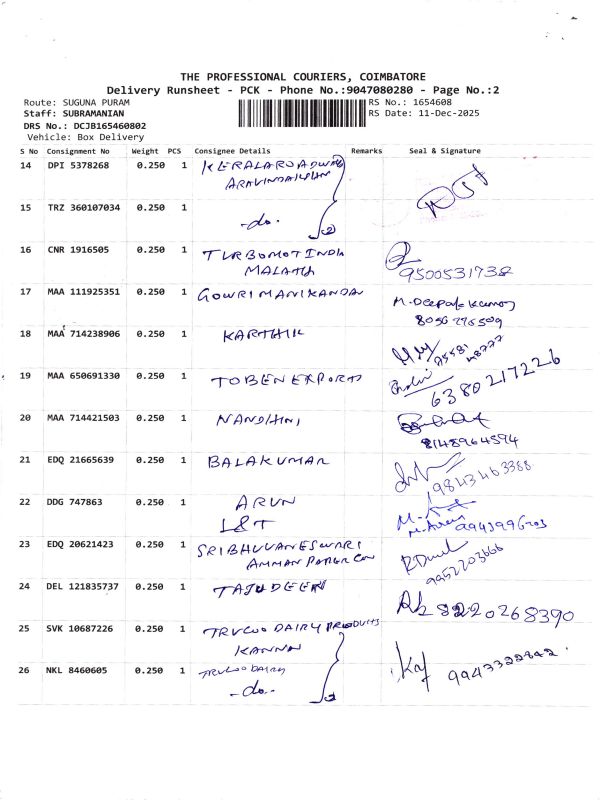 THE PROFESSIONAL COURIERS, COIMBATORE
Delivery Runsheet - PCK - Phone No.:9047080280 - Page No.:2
Route: SUGUNA PURAM RS No.: 1654608
Staff: SUBRAMANIAN RS Date: 11-Dec-2025
DRS No.: DCJB165460802
Vehicle: Box Delivery
S No Consignment No Weight PCS Consignee Details Remarks Seal & Signature
14 DPI 5378268 0.250 1 KERALAROADWAYS
15 TRZ 360107034 0.250 1 -do-
16 CNR 1916505 0.250 1 TURBOMOT INDIA
MALATHI 9500531738
17 MAA 111925351 0.250 1 GOWRIMANIKANDAN M. Deepak Kumar
18 MAA 714238906 0.250 1 KARTHIK
19 MAA 650691330 0.250 1 TOBEN EXPORTS 6380217226
20 MAA 714421503 0.250 1 NANDHINI
8148964594
21 EDQ 21665639 0.250 1 BALAKUMAR 9843463388
22 DDG 747863 0.250 1 ARUN
L&T
23 EDQ 20621423 0.250 1 SRIBHUVANESWARI
AMMAN PAPER CON 9952203666
24 DEL 121835737 0.250 1 TAJUDEEN 8220268390
25 SVK 10687226 0.250 1 TRULOO DAIRY PRODUCTS
KANNA
26 NKL 8460605 0.250 1 TRULOO DAIRY 9943322842
-do-